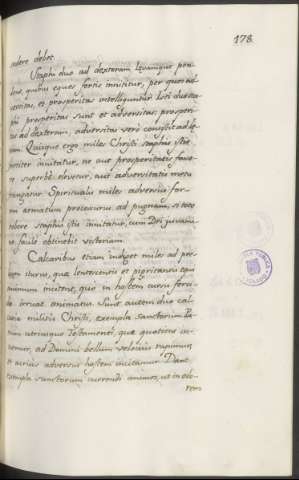 178.
cadere debet.
Staphi duo ad dexteram levamque pen-
dent, quibus eques fortis innititur, per quos ad-
versitas, et prosperitas intelliguntur. Isti duo sta-
phi prosperitas sunt et adversitas: prosperi-
tas ad dexteram, adversitas verò
am. Quique ergo miles Christi staphos istos
pariter innitatur, ne aut prosperitatis favo-
re superbè elevetur, aut adversitatis metu
frangatur. Spiritualis miles adversus for-
tem armatum procurrens ad pugnam, si toto
robore staphis istis innitatur, cum Dei juvami-
ne facile obtinebit victoriam.
Calcaribus etiam indiget miles ad pre-
iturus, quae lentescentis et pigritantis equi
animum incitent, quò in hostem cursu foci-
irruat animatus. Sunt autem duo cal-
caria militis Christi, exempla Sanctorum Pa-
trum utriusque Testamenti, quae quoties in-
tuemur, ad Domini bellum velocius rapimur,
et acrius adversus hostem incitamur. Dant
exempla sanctorum currendi animos, ut in odo-
rem